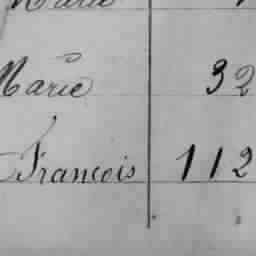 Marie 32
François 112